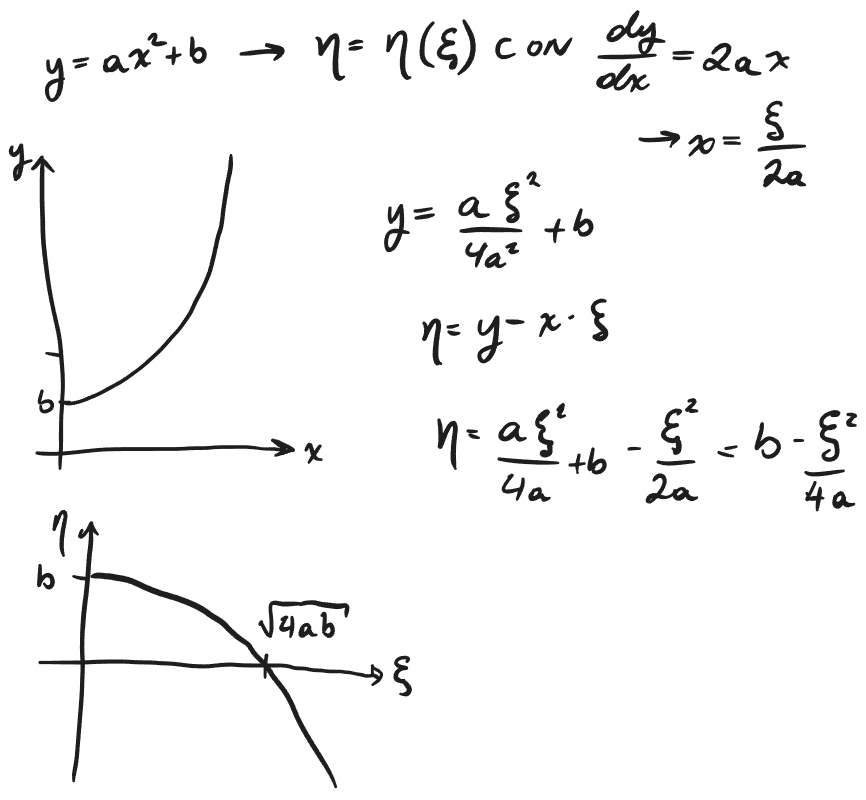 y = ax² + b → η = η(ξ) con dy/dx = 2ax
→ x = ξ/2a
y = aξ²/4a² + b
η = y - x · ξ
η = aξ²/4a + b - ξ²/2a = b - ξ²/4a
y
b
x
η
b
√4ab
ξ